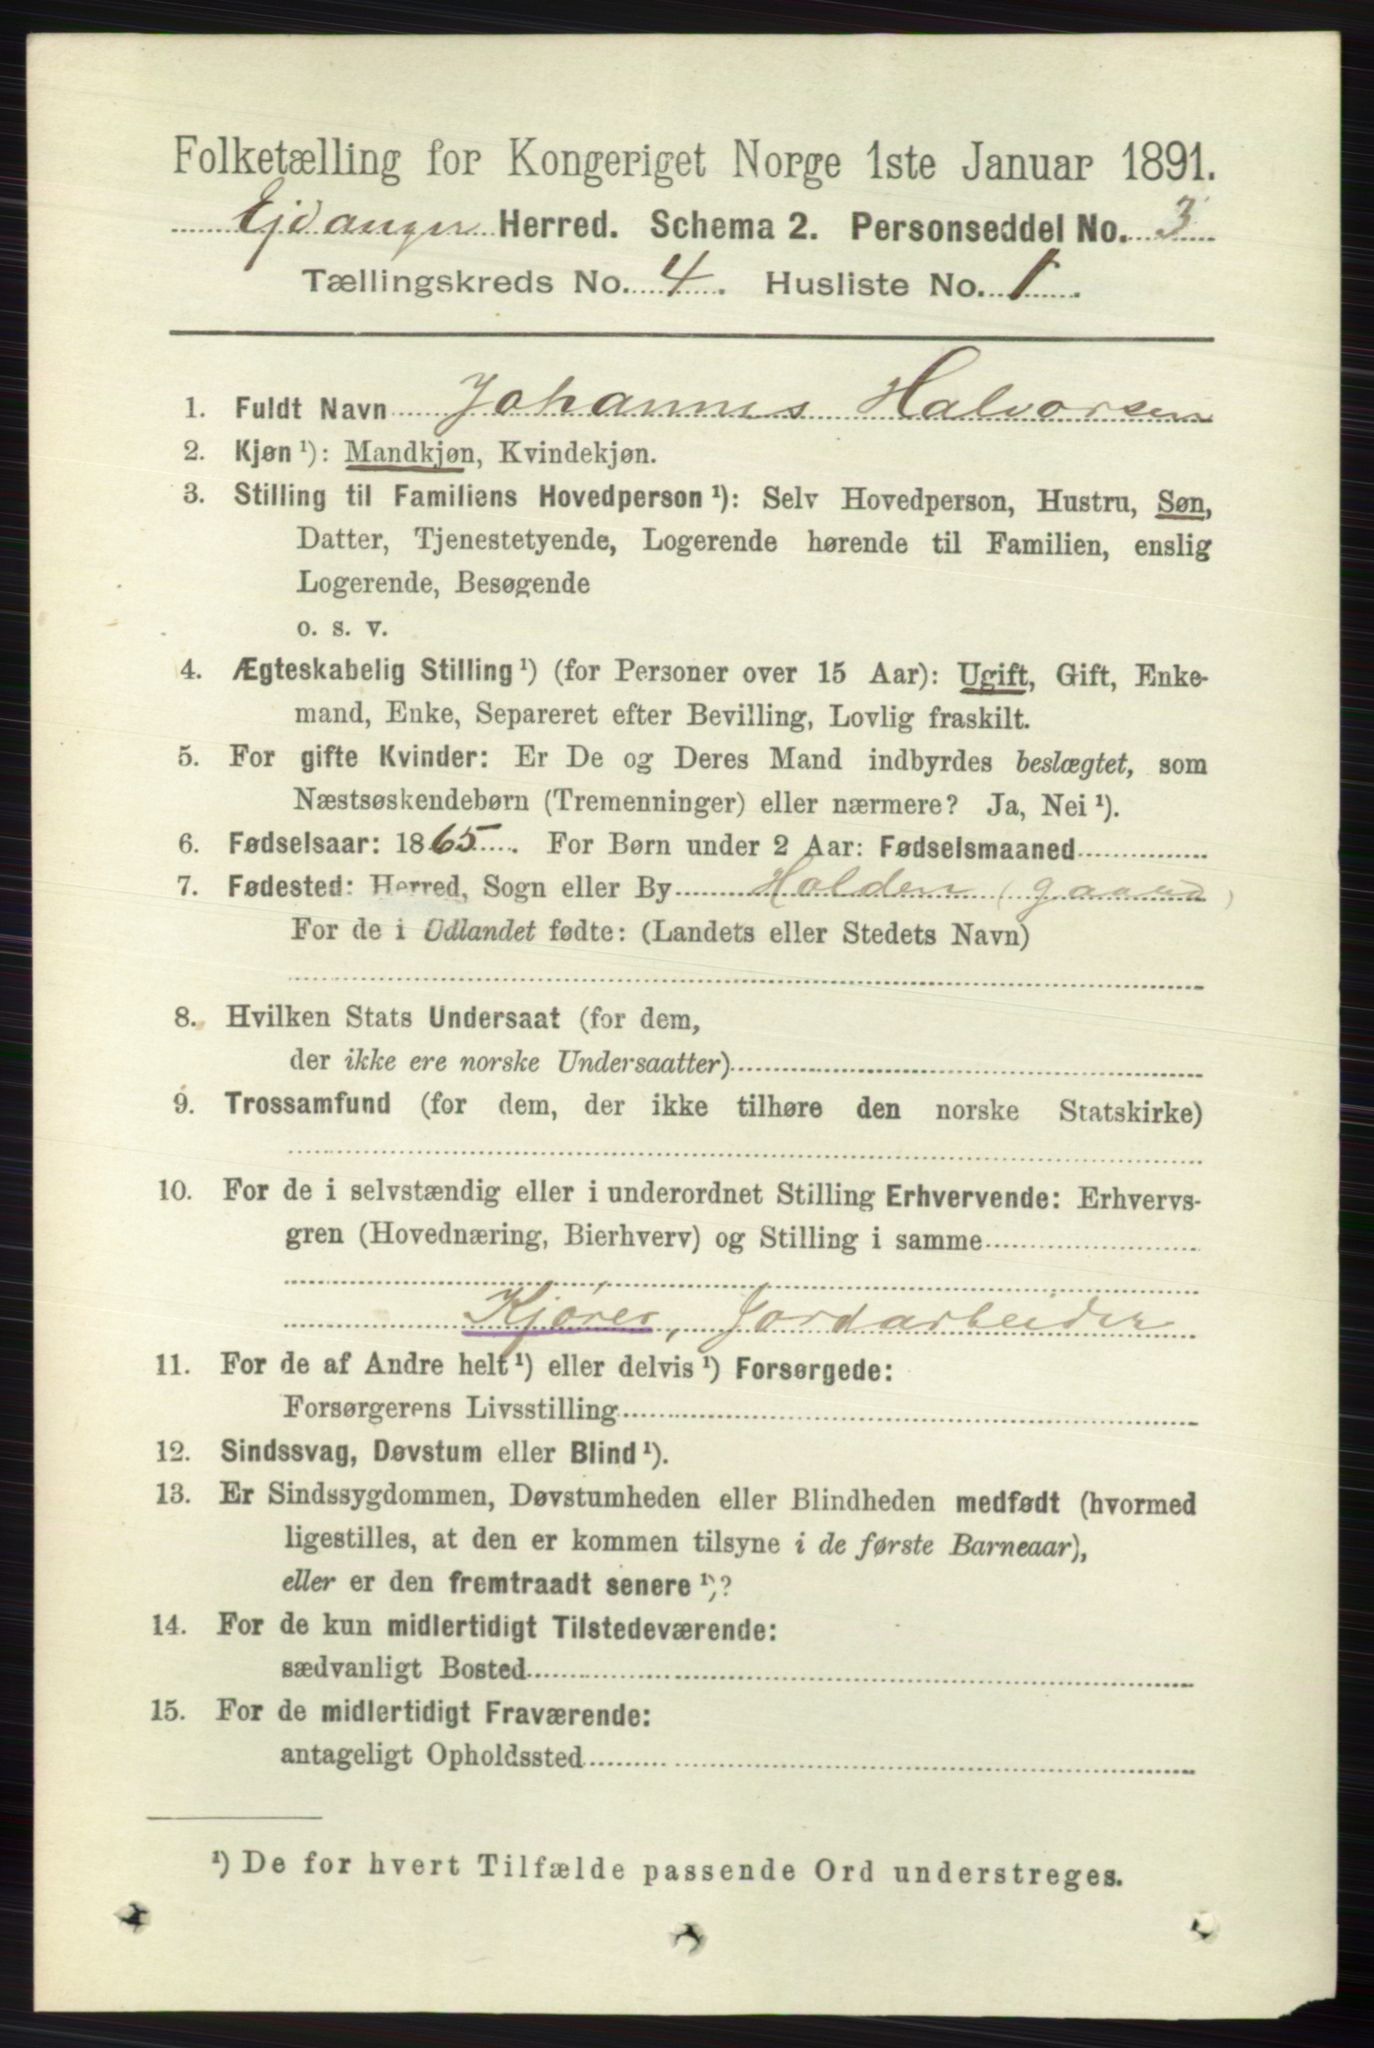 Folketælling for Kongeriget Norge 1ste Januar 1891.
Ejdanger Herred. Schema 2. Personseddel No. 3
Tællingskreds No. 4. Husliste No. 1.
1. Fuldt Navn Johannes Halvorsen
2. Kjøn ¹): Mandkjøn, Kvindekjøn.
3. Stilling til Familiens Hovedperson ¹): Selv Hovedperson, Hustru, Søn,
Datter, Tjenestetyende, Logerende hørende til Familien, enslig
Logerende, Besøgende
o. s. v.
4. Ægteskabelig Stilling ¹) (for Personer over 15 Aar): Ugift, Gift, Enke-
mand, Enke, Separeret efter Bevilling, Lovlig fraskilt.
5. For gifte Kvinder: Er De og Deres Mand indbyrdes beslægtet, som
Næstsøskendebørn (Tremenninger) eller nærmere? Ja, Nei ¹).
6. Fødselsaar: 1865. For Børn under 2 Aar: Fødselsmaaned
7. Fødested: Herred, Sogn eller By Holden (gaard)
For de i Udlandet fødte: (Landets eller Stedets Navn)
8. Hvilken Stats Undersaat (for dem,
der ikke ere norske Undersaatter)
9. Trossamfund (for dem, der ikke tilhøre den norske Statskirke)
10. For de i selvstændig eller i underordnet Stilling Erhvervende: Erhvervs-
gren (Hovednæring, Bierhverv) og Stilling i samme
Kjører, Jordarbeider
11. For de af Andre helt ¹) eller delvis ¹) Forsørgede:
Forsørgerens Livsstilling
12. Sindssvag, Døvstum eller Blind ¹).
13. Er Sindssygdommen, Døvstumheden eller Blindheden medfødt (hvormed
ligestilles, at den er kommen tilsyne i de første Barneaar),
eller er den fremtraadt senere ¹)?
14. For de kun midlertidigt Tilstedeværende:
sædvanligt Bosted
15. For de midlertidigt Fraværende:
antageligt Opholdssted
¹) De for hvert Tilfælde passende Ord understreges.